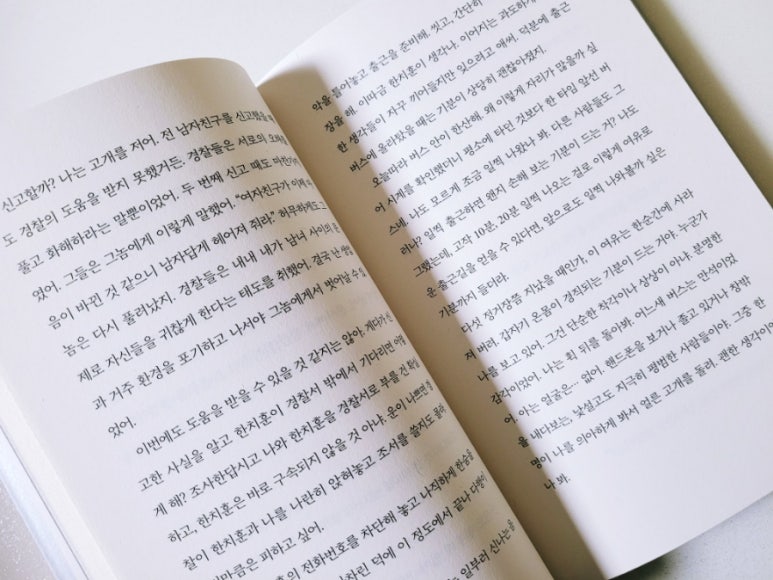 신고할까? 나는 고개를 저어. 전 남자친구를 신고했을 때
도 경찰의 도움을 받지 못했거든. 경찰들은 서로의 오해를
풀고, 화해하라는 말뿐이었어. 두 번째 신고 때도 마찬가지
었어. 그들은 그놈에게 이렇게 말했어. “여자친구가 이제
음이 바뀐 것 같으니 남자답게 헤어져 줘라.” 허무하게도 그
놈은 다시 풀려났지. 경찰들은 내내 내가 남녀 사이의
제로 자신들을 귀찮게 한다는 태도를 취했어. 결국 난
과 거주 환경을 포기하고 나서야 그놈에게서 벗어날 수
었어.
이번에도 도움을 받을 수 있을 것 같지는 않아. 게다가
고한 사실을 알고 한치훈이 경찰서 밖에서 기다리면 어떻
게 해? 조사한답시고 나와 한치훈을 경찰서로 부를 건
하고, 한치훈은 바로 구속되지 않을 것 아냐. 운이 나쁘면
찰이 한치훈과 나를 나란히 앉혀놓고 조서를 쓸지도
만큼은 피하고 싶어.
의 전화번호를 차단해 놓고 나직하게 한숨을
차린 덕에 이 정도에서 끝나
일부러 신나는 음
악을 틀어놓고 출근을 준비해. 씻고, 간단히
장을 해. 이따금 한치훈이 생각나. 이어지는 과도하게
한 생각들이 자꾸 끼어들지만 잊으려고 애써. 덕분에 출근
버스에 올라탔을 때는 기분이 상당히 괜찮아졌지.
오늘따라 버스 안이 한산해. 왜 이렇게 자리가 많을까 싶
어 시계를 확인했더니 평소에 타던 것보다 한 타임 앞선 버
스네. 나도 모르게 조금 일찍 나왔나 봐. 다른 사람들도 그
러나? 일찍 출근하면 왠지 손해 보는 기분이 드는 거? 나도
그랬는데, 고작 10분, 20분 일찍 나오는 걸로 이렇게 여유로
운 출근길을 얻을 수 있다면, 앞으로도 일찍 나와볼까 싶은
기분까지 들더라.
다섯 정거장쯤 지났을 때인가, 이 여유는 한순간에 사라
져 버려. 갑자기 온몸이 경직되는 기분이 드는 거야. 누군가
나를 보고 있어. 그건 단순한 착각이나 상상이 아냐. 분명한
감각이었어. 나는 휙 뒤를 돌아봐. 어느새 버스는 만석이었
어. 아는 얼굴은… 없어. 핸드폰을 보거나 졸고 있거나 창밖
을 내다보는, 낯설고도 지극히 평범한 사람들이야. 그중 한
명이 나를 의아하게 봐서 얼른 고개를 돌려. 괜한 생각이
나 봐.